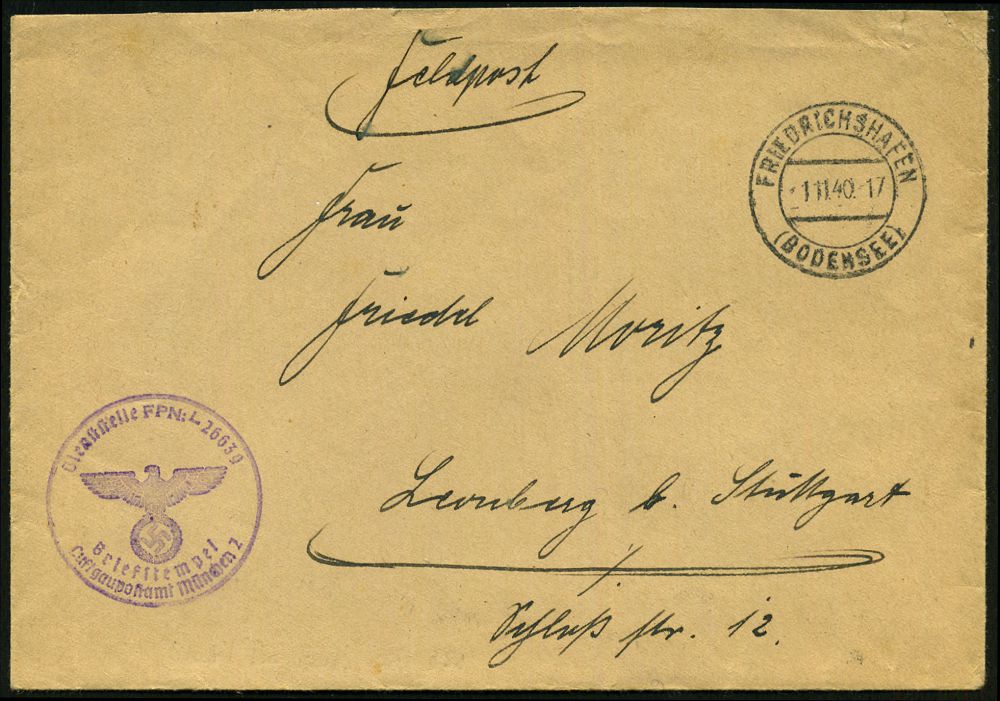 Feldpost
FRIEDRICHSHAFEN
1.11.40.-17
(BODENSEE)
Frau
Friedel Moritz
Dienststelle FPN: L 26639
Briefstempel
Luftgaupostamt München 2
Leonberg b. Stuttgart
Schloß str. 12.